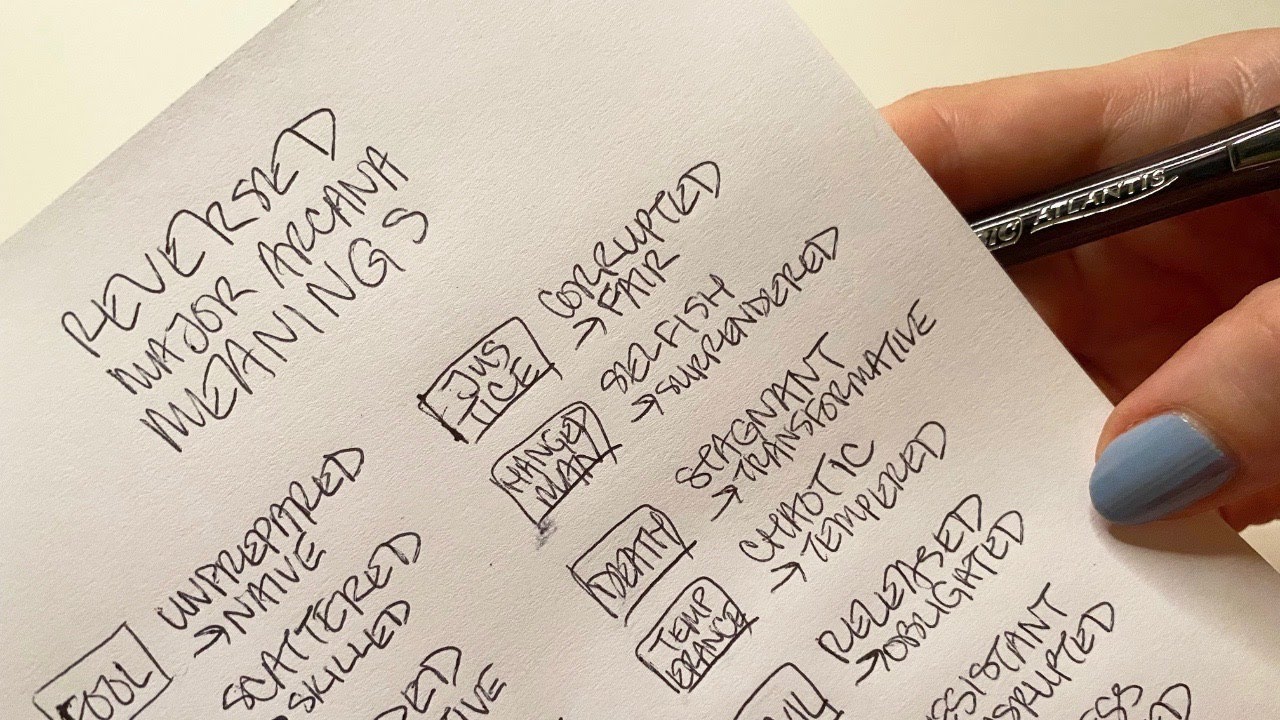 REVERSED
MAJOR ARCANA
MEANINGS
FOOL
UNPREPARED
→ NAIVE
SCATTERED
SKILLED
JUS
TICE
CORRUPTED
→ FAIR
HANGED
MAN
SELFISH
→ SURRENDERED
DEATH
STAGNANT
→ TRANSFORMATIVE
TEMP
ERANCE
CHAOTIC
→ TEMPERED
RELEASED
→ OBLIGATED
BIC ATLANTIS